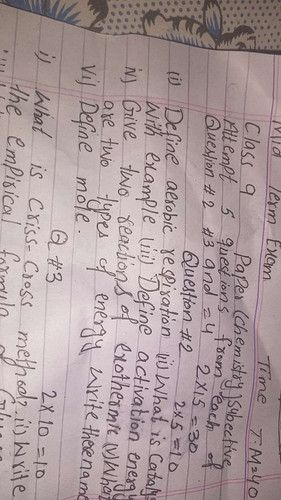 Mid Term Exam Time T.M=40
Class 9 Paper (chemistry) Subjective
Attempt 5 questions from each of
Question #2 #3 and =4 2x15=30
Question #2 2x5=10
(i) Define aerobic respiration ii) What is Cataly
with example (iii) Define activation energy
iv) Give two reactions of exothermic v) When
are two types of energy write there name
vi) Define mole.
Q #3 2x10=10
i) What is criss-cross method. ii) Write
the empirical formula of